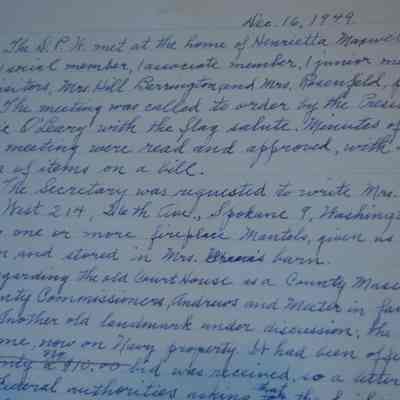 Dec. 16, 1949
The D.P.W. met at the home of Henrietta Maxwel
1 social member, 1 associate member, 1 junior me
isitors, Mrs. Hill Berrington, and Mrs. Rosenfeld,
The meeting was called to order by the Presi
ie O'Leary with the flag salute. Minutes of
meeting were read and approved, with
of items on a bill.
The Secretary was requested to write Mrs.
West 214, 26th Ave., Spokane 9, Washing
one or more fireplace Mantels, given us
n and stored in Mrs. barn.
egarding the old Court House as a County Muse
nty Commissioners, Andrews and Meeter in fav
Another old landmark under discussion, the
ome, now on Navy property. It had been offe
only a $10.00 bid was received, so a letter
Federal authorities asking that the